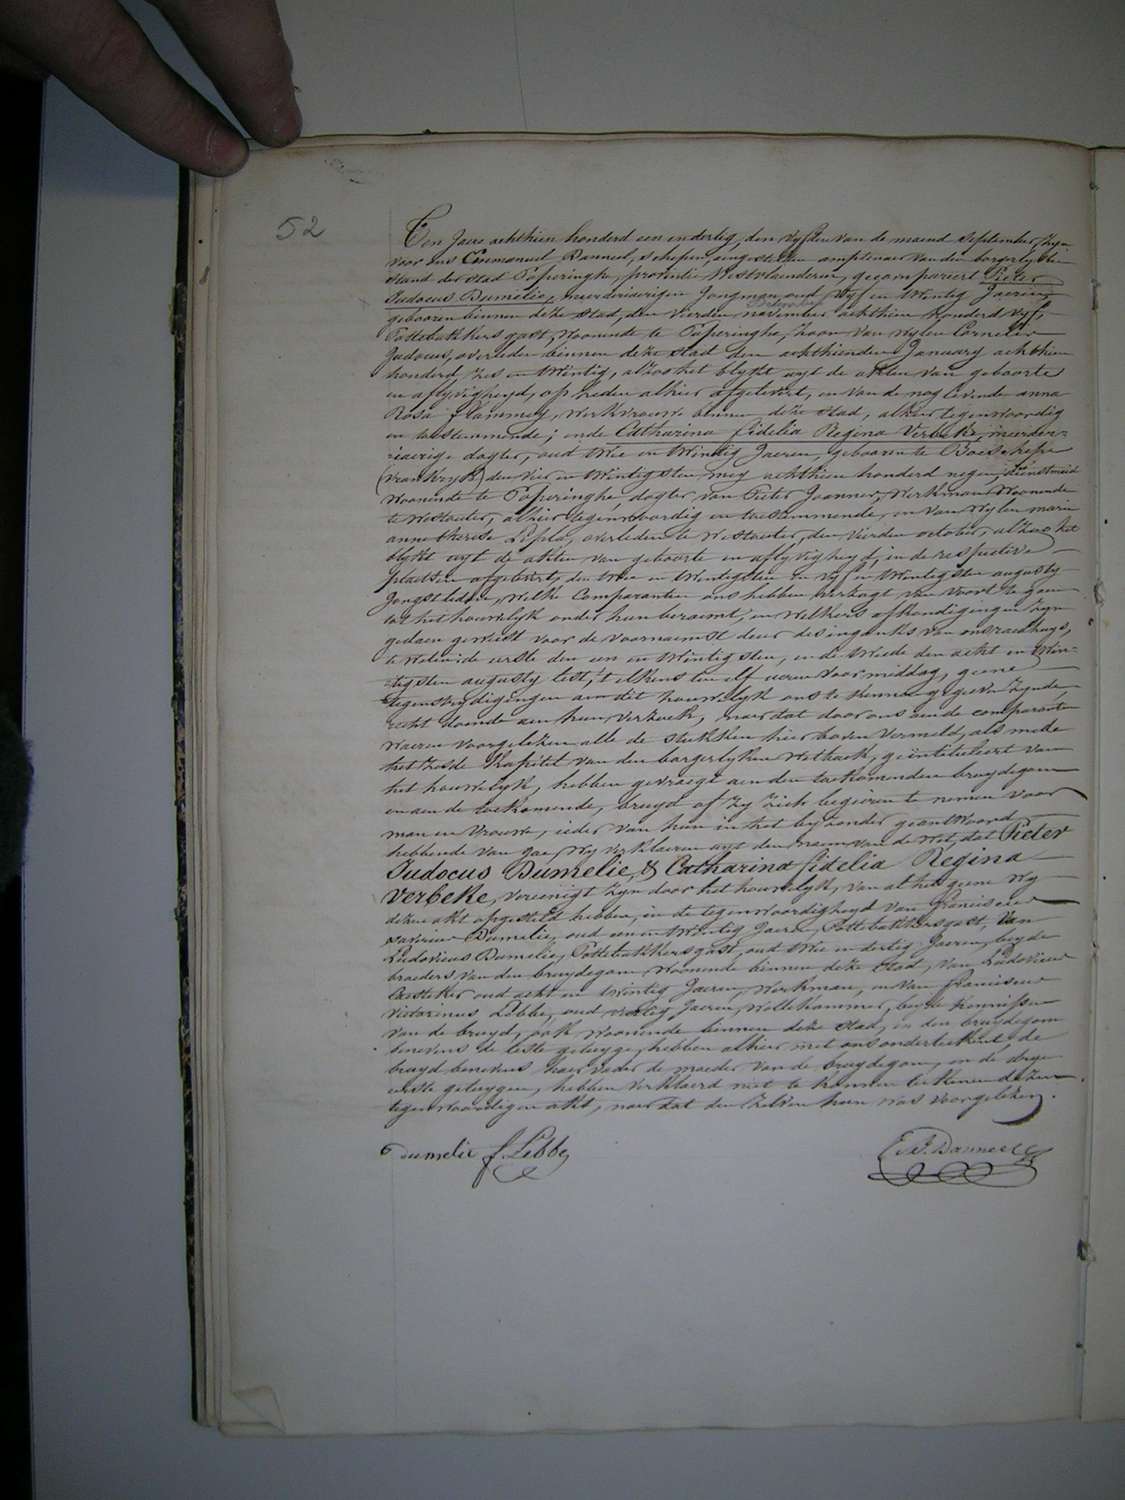 52
Ten Jaere achthien honderd een en dertig, den vyfden van de maend September, zyn
voor ons Emmanuel Banneel, schepen, amptenaer van den borgerlyken
stand der stad Poperinghe, provintie Westvlaenderen, gecompareert Pieter
Judocus Dumelie, meerderjaerigen Jongman, oud vyf en twintig Jaeren,
gebooren binnen deze stad, den vierden november achthien honderd vyf,
Pottebakkersgast, woonende te Poperinghe, zoon van wylen Cornelis
Judocus, overleden binnen deze stad den achthienden January achthien
honderd zes en twintig, alzoo het blykt uyt de akten van geboorte
en aflyvigheyd, op heden alhier afgelevert, en van de nog levende anna
Rosa, werkvrouwe binnen deze stad, alhier tegenwoordig
en toestemmende; ende Catharina fidelia Regina Verbeke, meerder-
jaerige dogter, oud twee en twintig Jaeren, gebooren te Boeschepe
(vrankryk) den vier en twintigsten mey achthien honderd negen, dienstmeid
woonende te Poperinghe, dogter van Pieter Joannes, werkman woonende
te Westouter, alhier tegenwoordig en toestemmende, en van wylen marie
anne therese, overleden te Westouter, den vierden october, alzoo het
blykt uyt de akten van geboorte en aflyvigheyd, in de respective
plaetsen afgelevert, den twee en twintigsten en vyf en twintigsten augusty
Jongstleden, welke Comparanten ons hebben verzogt van voort te gaen
tot het houwelyk onder hun beraemt, en welkers afkondigingen zyn
gedaen geweest voor de voornaemste deur des ingangks van ons raedhuys,
te weten de eerste den een en twintigsten, en de tweede den acht en twin-
tigsten augusty lest, telkens ten elf uren voormiddag, geene
tegenstrydigingen aen dit houwelyk ons te kennen gegeven zynde,
recht doende aen hun verzoek, naer dat door ons aen de comparanten
waeren voorgelezen alle de stukken hier boven vermeld, als mede
het zesde kapittel van den borgerlyken Wetboek, geintituleert van
het houwelyk, hebben gevraegt aen den toekomenden bruydegom
en aen de toekomende bruyd of zy zich begeeren te nemen voor
man en vrouwe, ieder van hun in het byzonder geantwoord
hebbende van Jae, wy verklaeren uyt den naem van de Wet, dat Pieter
Judocus Dumelie, & Catharina fidelia Regina
Verbeke, vereenigt zyn door het houwelyk, van al het geene wy
dezen akt opgesteld hebben, in de tegenwoordigheyd van franciscus
xaverius Dumelie, oud een en twintig Jaeren, Pottebakkersgast, van
Ludovicus Dumelie, Pottebakkersgast, oud twee en dertig Jaeren, beyde
broeders van den bruydegom, woonende binnen deze stad, van Ludovicus
oud acht en twintig Jaeren, werkman, en van franciscus
Victorinus Lebbe, oud veertig Jaeren, beyde kennissen
van de bruyd, ook woonende binnen deze stad, en den bruydegom
benevens de leste getuyge, hebben alhier met ons onderteekent, de
bruyd benevens haer vader de moeder van de bruydegom, en de drye
eerste getuygen, hebben verklaerd niet te konnen teekenen dezen
tegenwoordigen akt, naer dat den zelven hun was voorgelezen.
Dumelie f. Lebbe
Banneel